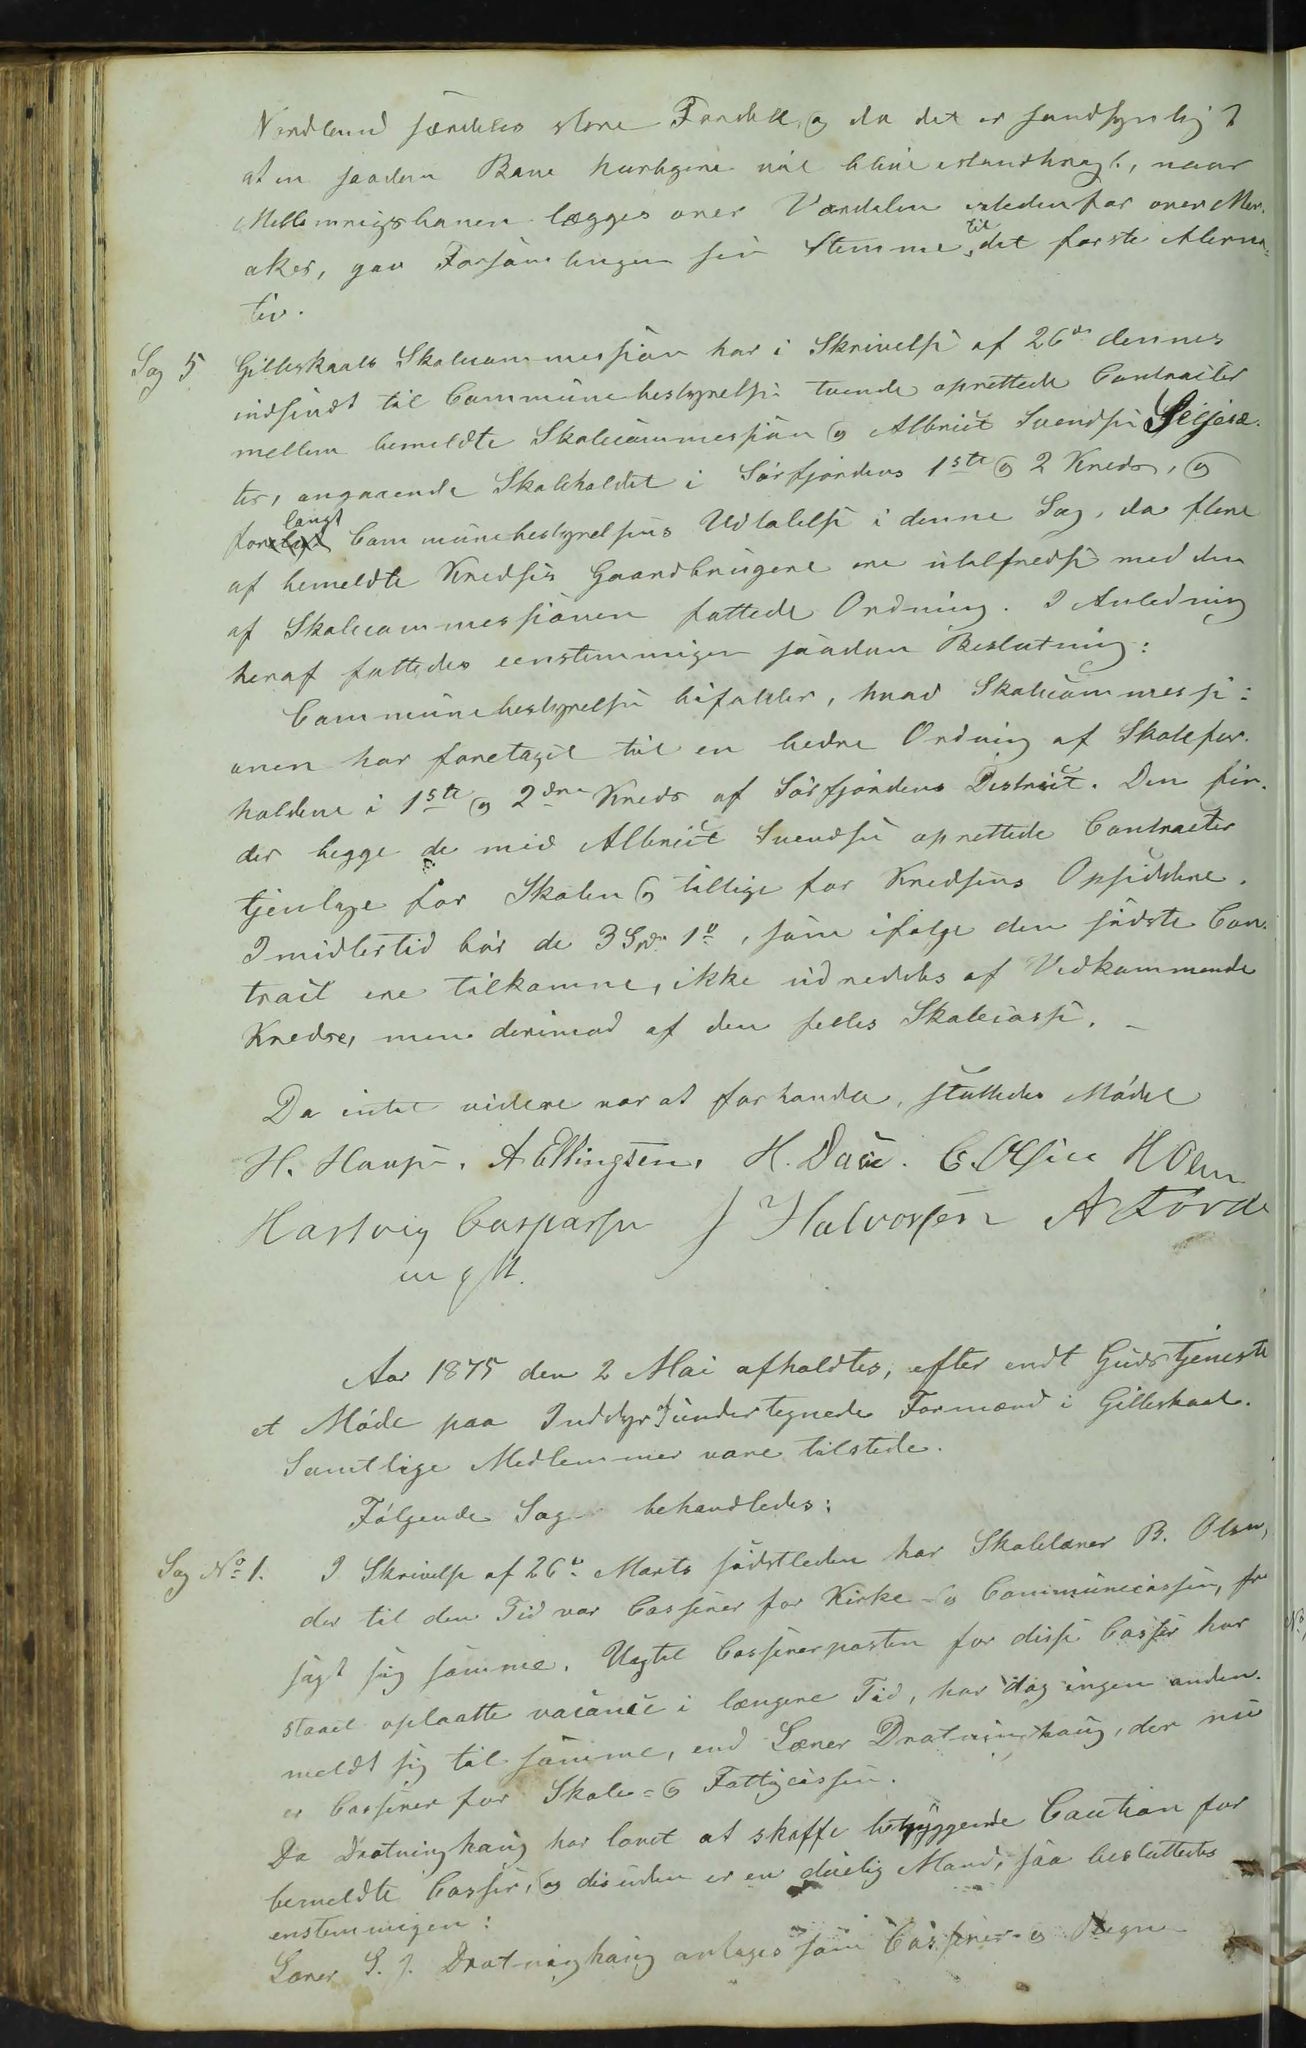 Nordland særdeles store Fordele, og da det er sandsynligt
at en saadan Bane hurtigere vil blive istandbragt, naar
Mellemrigsbanen lægges over Værdalen istedenfor over Mer-
aker, gav Forsamlingen sin Stemme til det første Alterna-
tiv.
Sag 5 Gilleskaals Skolecommission har i Skrivelse af 26de dennes
indsendt til Communebestyrelsen tvende oprettede Contracter
mellem bemeldte Skolecommission og Albrict Svendsen Seljesæ-
ter, angaaende Skoleholdet i Sørfjordens 1ste og 2 Kreds, og
forelangt Communebestyrelsens Udtalelse i denne Sag, da flere
af bemeldte Kredses Gaardbrugere ere utilfredse med den
af Skolecommissionen fattede Ordning. I Anledning
heraf fattedes eenstemmigen saadan Beslutning:
Communebestyrelsen bifalder, hvad Skolecommissi-
onen har foretaget til en bedre Ordning af Skolefor-
holdene i 1ste og 2den Kreds af Sørfjordens District. Den fin-
der begge de med Albrict Svendsen oprettede Contracter
tjenlige for Skolen og tillige for Kredsens Opsiddere.
Imidlertid bør de 3 Spd. 1 #, som ifølge den sidste Con-
tract ere tilkomne, ikke udredes af Vedkommende
Kredse, men derimod af den felles Skolecasse. -
Da intet videre var at forhandle, sluttedes Mødet
H. Haugen. A Ellingsen. H. Daae. C. Olsen H Olsen
Hartvig Caspersen J Halvorsen A Førde
m f P.
Aar 1875 den 2 Mai afholdtes, efter endt Gudstjeneste
et Møde paa Inddyr af undertegnede Formænd i Gilleskaal.
Samtlige Medlemmer vare tilstede.
Følgende Sag behandledes:
Sag No 1. I Skrivelse af 26de Marts sidstleden har Skolelærer B. Olsen,
der til den Tid var Casserer for Kirke- og Communecassen, fra
sagt sig samme. Uagtet Cassererposten for disse Casser har
staaet oplaatte vacance i længere Tid, har dog ingen anden
meldt sig til samme, end Lærer Drotninghaug, der nu
er Casserer for Skole- og Fattigcassen.
Da Drotninghaug har lovet at skaffe betryggende Caution for
bemeldte Casser, og desuden er en duelig Mand, saa besluttedes
enstemmigen:
Lærer S. J. Drotninghaug antages som Casserer- og Regn-